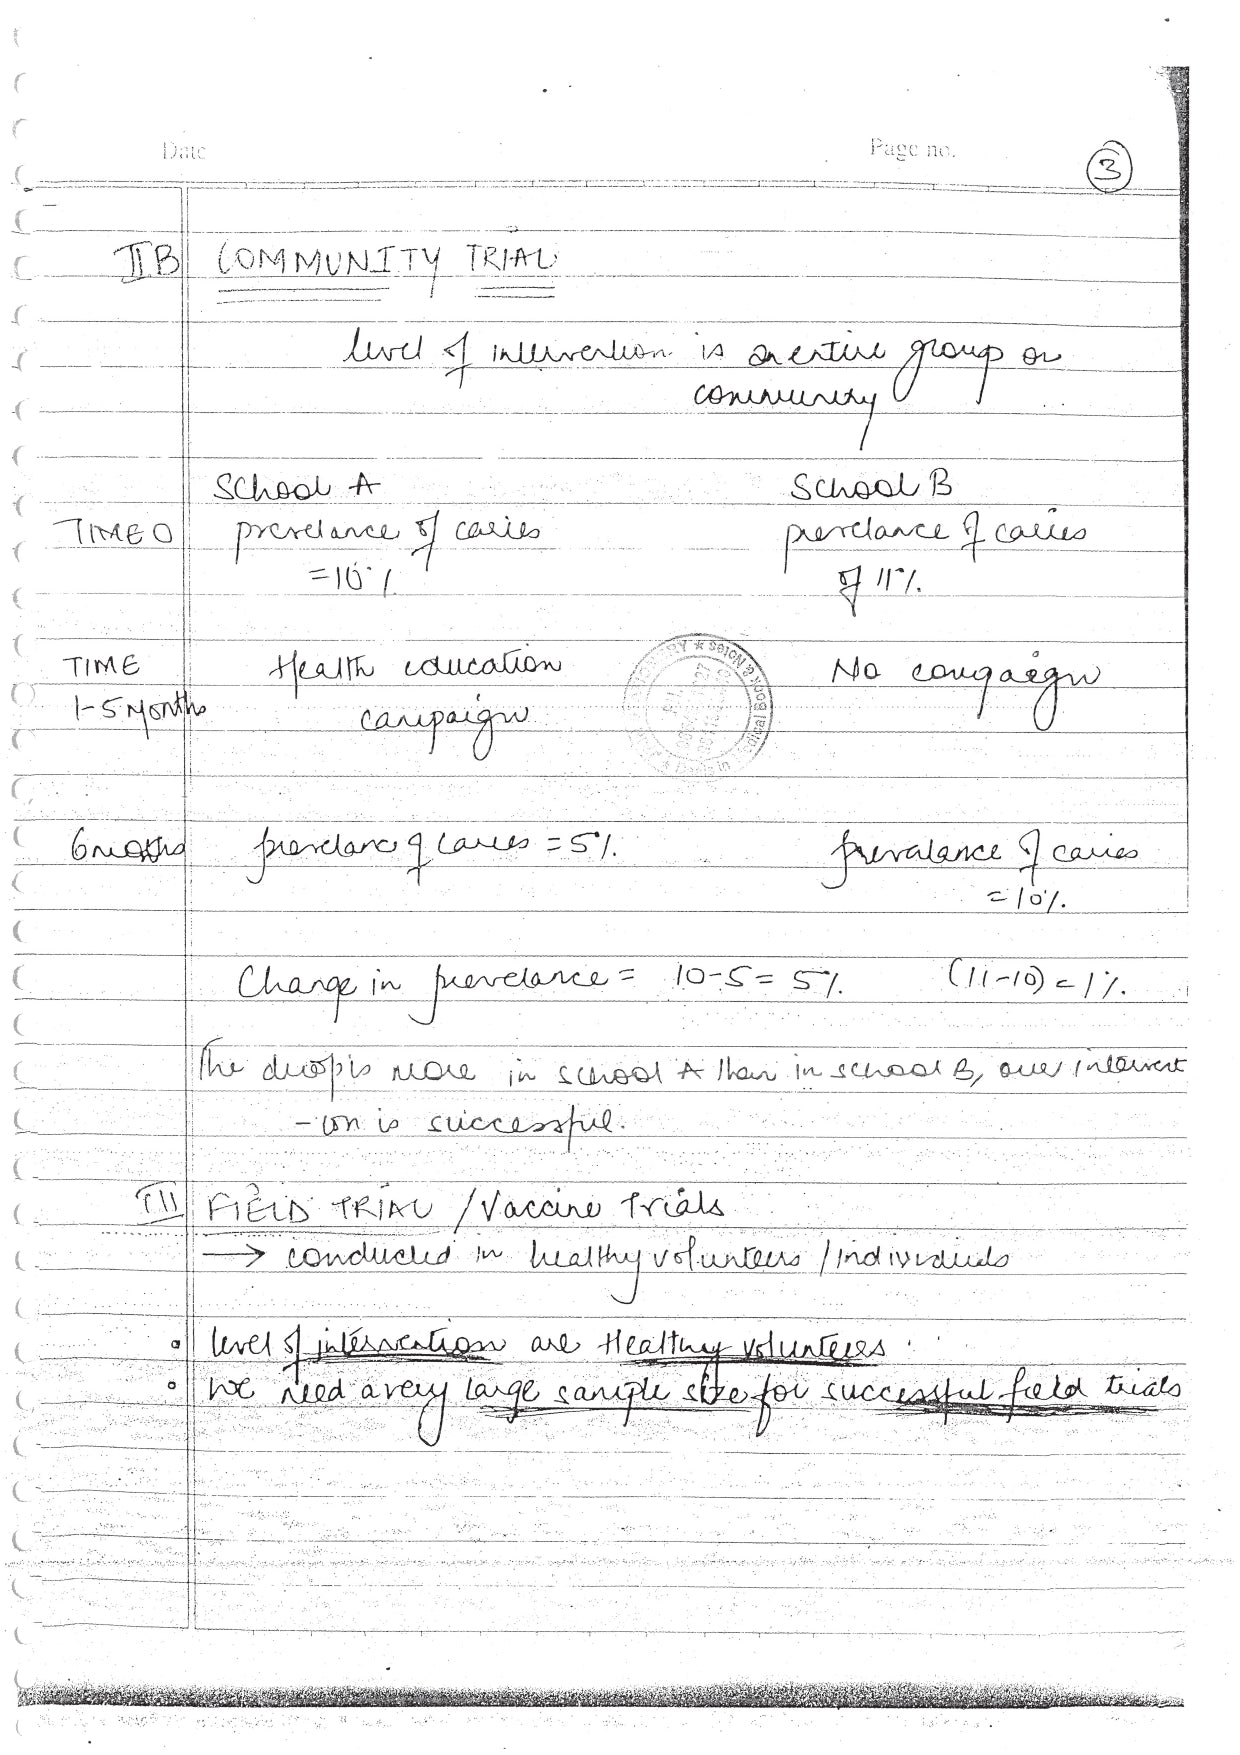 Date
Page no.
3
II B COMMUNITY TRIAL
level of intervention is an entire group or
community
School A School B
TIME 0 prevelance of caries prevelance of caries
=10% of 11%
TIME Health education No campaign
1-5 Months campaign
6 months prevelance of caries = 5% prevalance of caries
= 10%
Change in prevelance = 10-5 = 5% (11-10) = 1%
The drop is more in school A than in school B, our intervent
-ion is successful.
III FIELD TRIAL / Vaccine Trials
→ conducted in healthy volunteers / individuals
level of intervention are Healthy volunteers.
We need a very large sample size for successful field trials